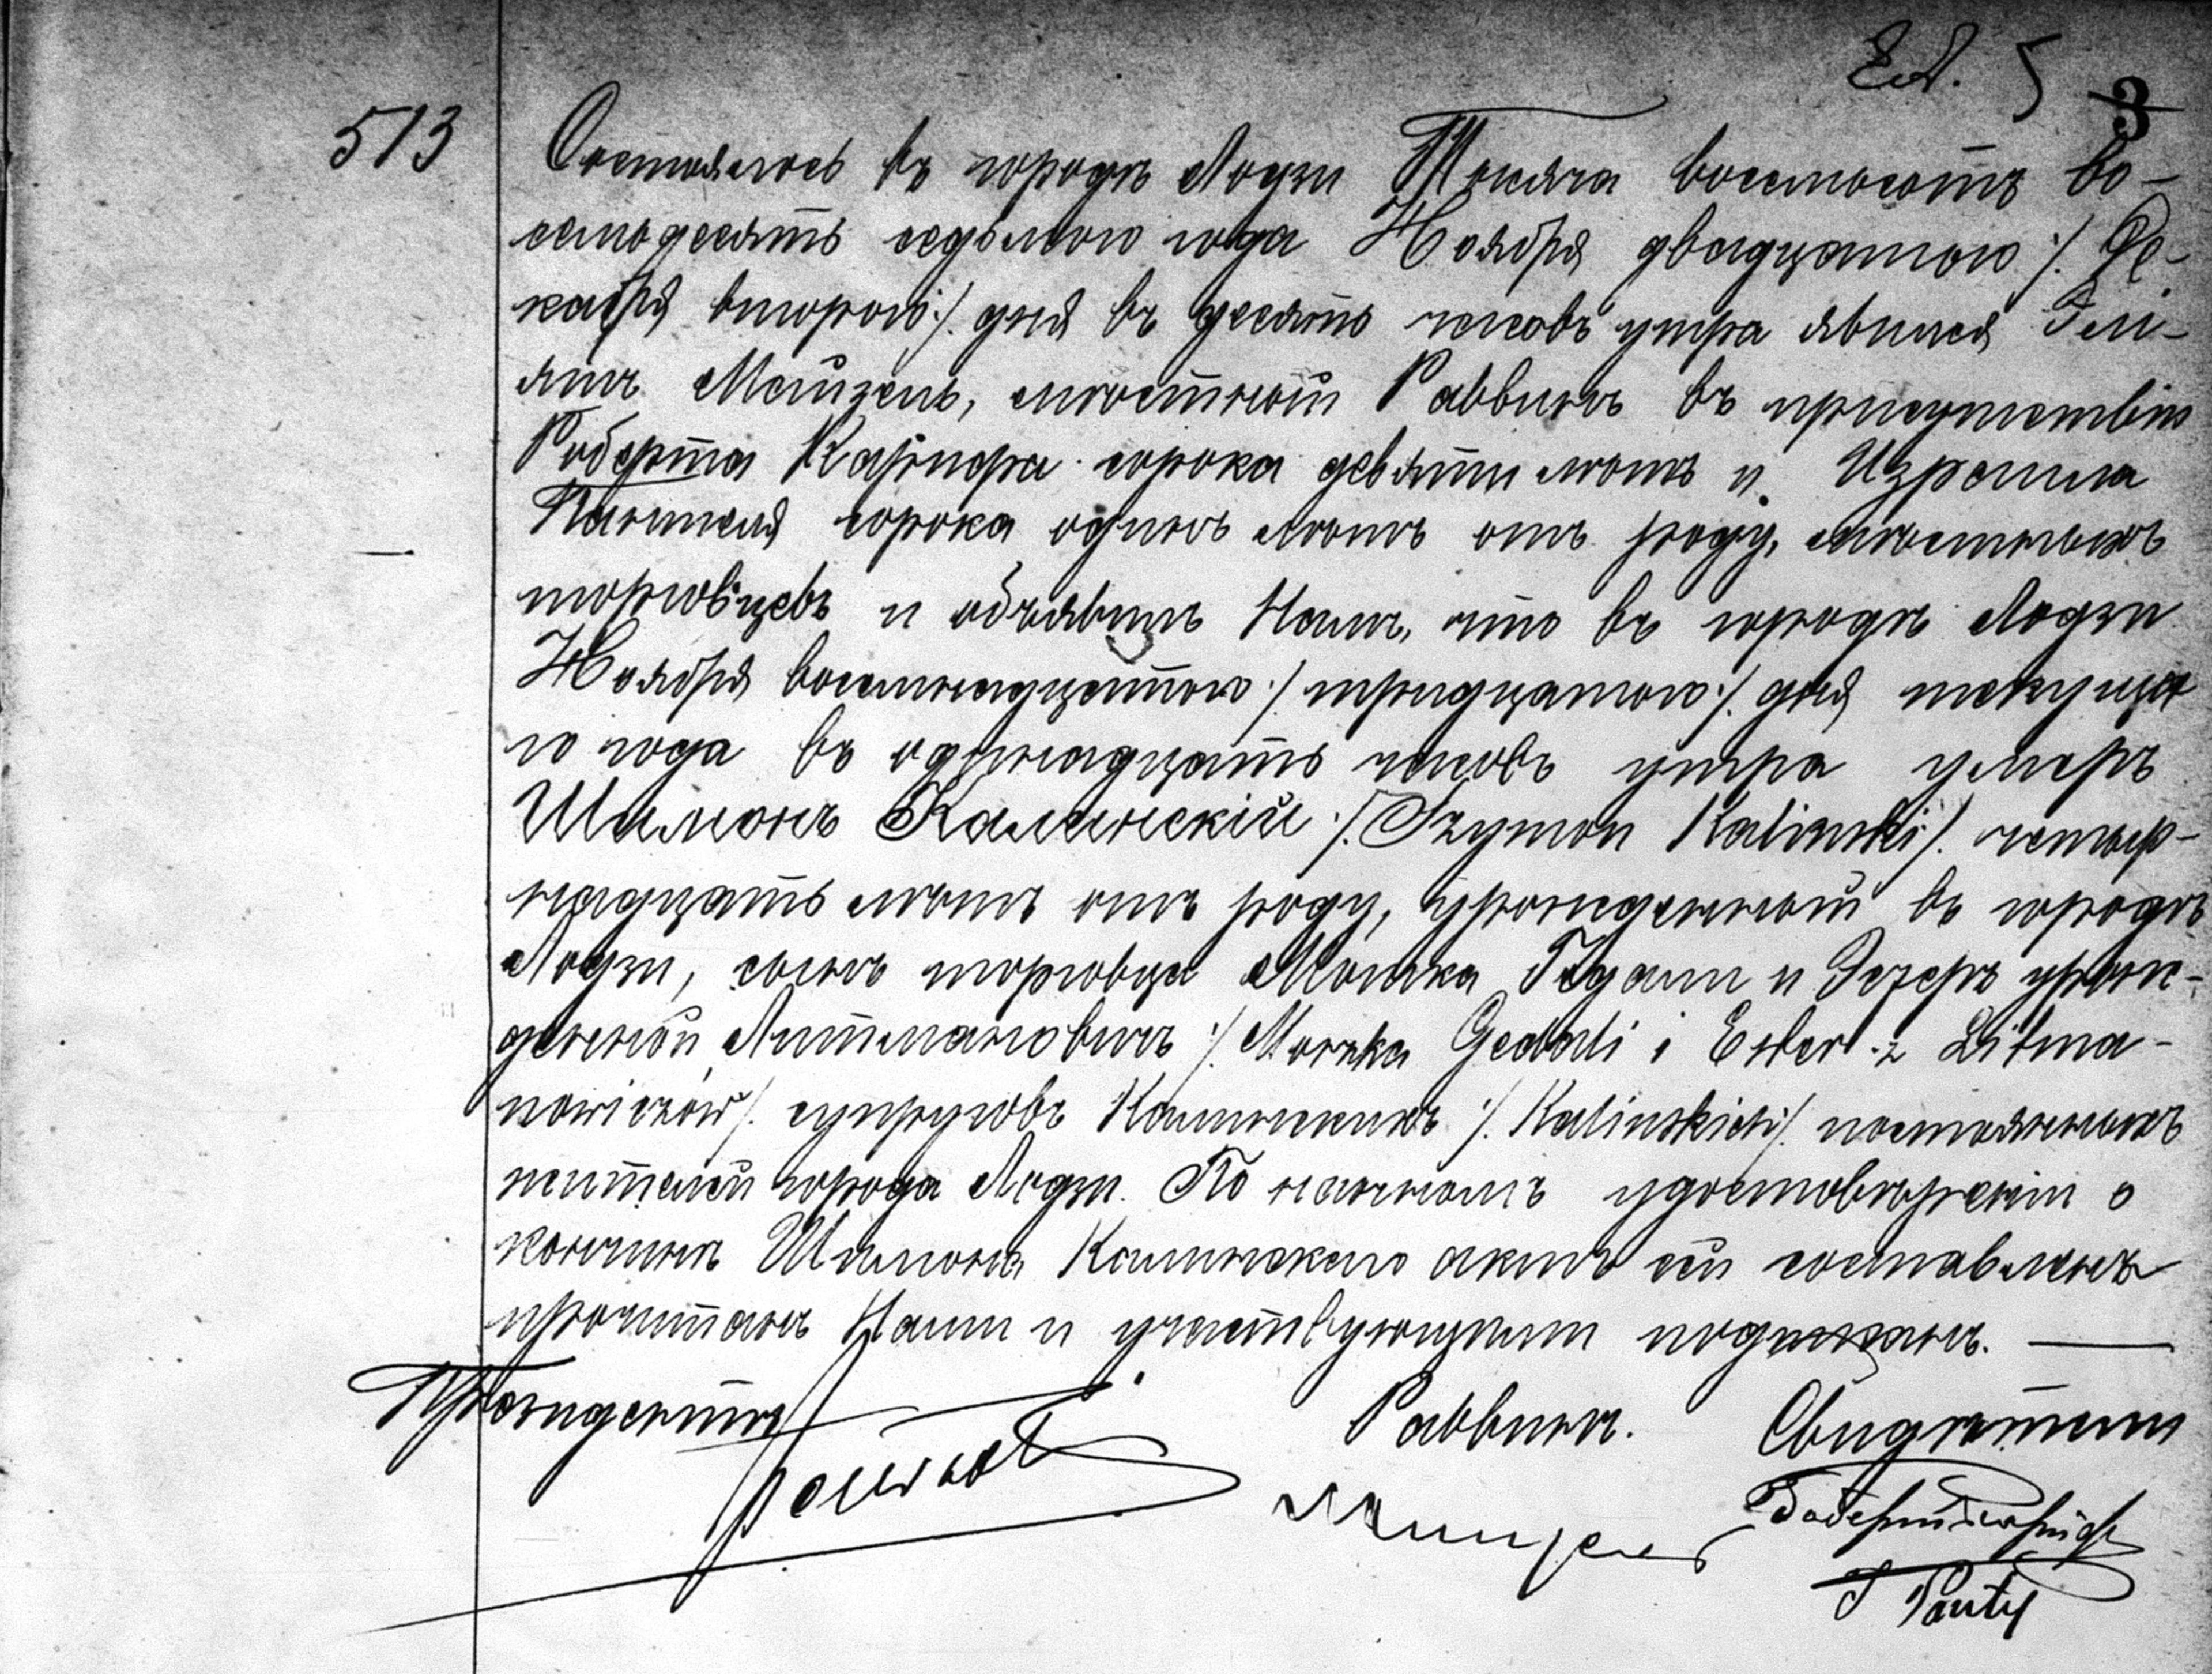 513
5
3
Состоялось въ городѣ Лодзи Тысяча восемьсотъ во-
семьдесятъ седьмого года Ноября двадцатого /: Де-
кабря второго :/ дня въ десять часовъ утра явился Эли-
яшъ Мейзель, мѣстный Раввинъ въ присутствіи
Роберта Карпфа сорока девяти лѣтъ и Израиля
Пантеля сорока одинъ лѣтъ отъ роду, мѣстныхъ
торговцевъ и объявилъ Намъ, что въ городѣ Лодзи
Ноября восемнадцатого /: тридцатого :/ дня текуща
го года въ одинадцать часовъ утра умеръ
Шимонъ Калинскій /: Szymon Kalinski :/ четыр-
надцать лѣтъ отъ роду, урожденный въ городѣ
Лодзи, сынъ торговца Мошка Гедали и Эстеръ урож-
денной Литмановичъ /: Moszka Gedali i Ester z Litma-
nowiczów :/ супруговъ Калинскихъ /: Kalinskich :/ постоянныхъ
жителей города Лодзи. По наочномъ удостовѣреніи о
кончинѣ Шимона Калинскаго актъ сей составленъ
прочитанъ Нами и участвующими подписанъ. —
Президентъ Раввинъ. Свидѣтели
Мейзель